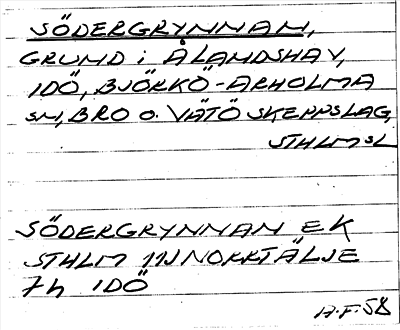 SÖDERGRYNNAN,
GRUND i ÅLANDSHAV,
IDÖ, BJÖRKÖ-ARHOLMA
SN, BRO O. VÄTÖ SKEPPSLAG,
STHLMSL
SÖDERGRYNNAN EK
STHLM 11J NORRTÄLJE
7h IDÖ
A.F.58